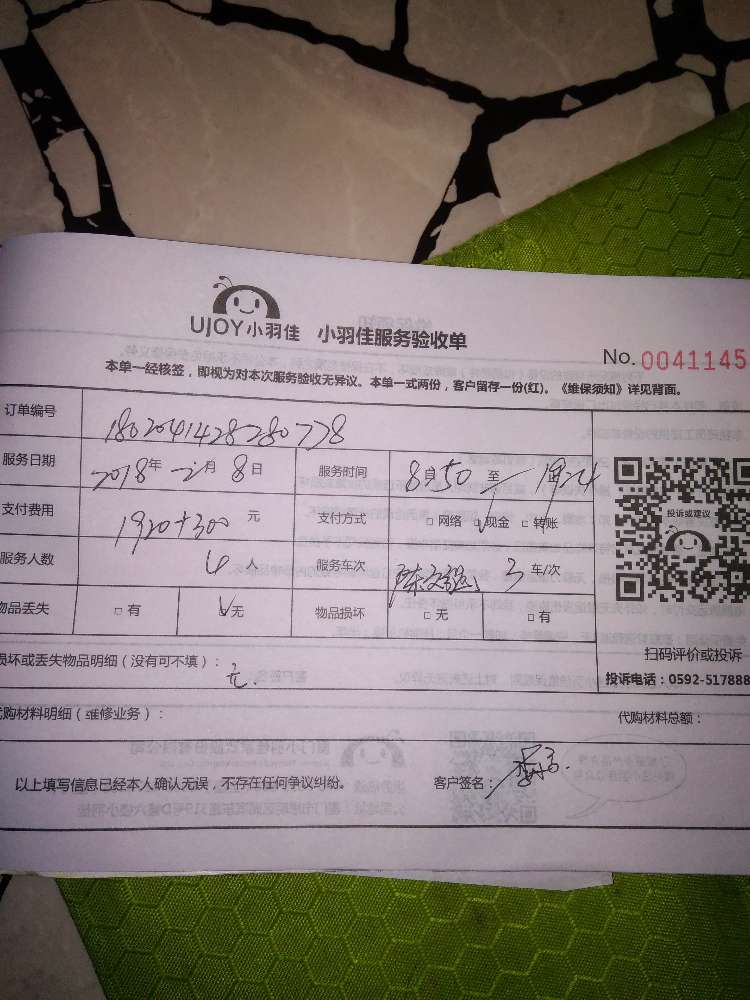 UJOY小羽佳 小羽佳服务验收单
No. 0041145
本单一经核签，即视为对本次服务验收无异议。本单一式两份，客户留存一份(红)。《维保须知》详见背面。
订单编号 180204142828077 8
服务日期 2018年 2月 8日 服务时间 8 50 至
支付费用 1920+300 元 支付方式 □网络 ☑现金 □转账
投诉或建议
服务人数 4 人 服务车次 3 车/次
物品丢失 □有 ☑无 物品损坏 □无 □有
扫码评价或投诉
损坏或丢失物品明细（没有可不填）： 无.
投诉电话：0592-517888
代购材料明细（维修业务）： 代购材料总额：
以上填写信息已经本人确认无误，不存在任何争议纠纷。 客户签名：